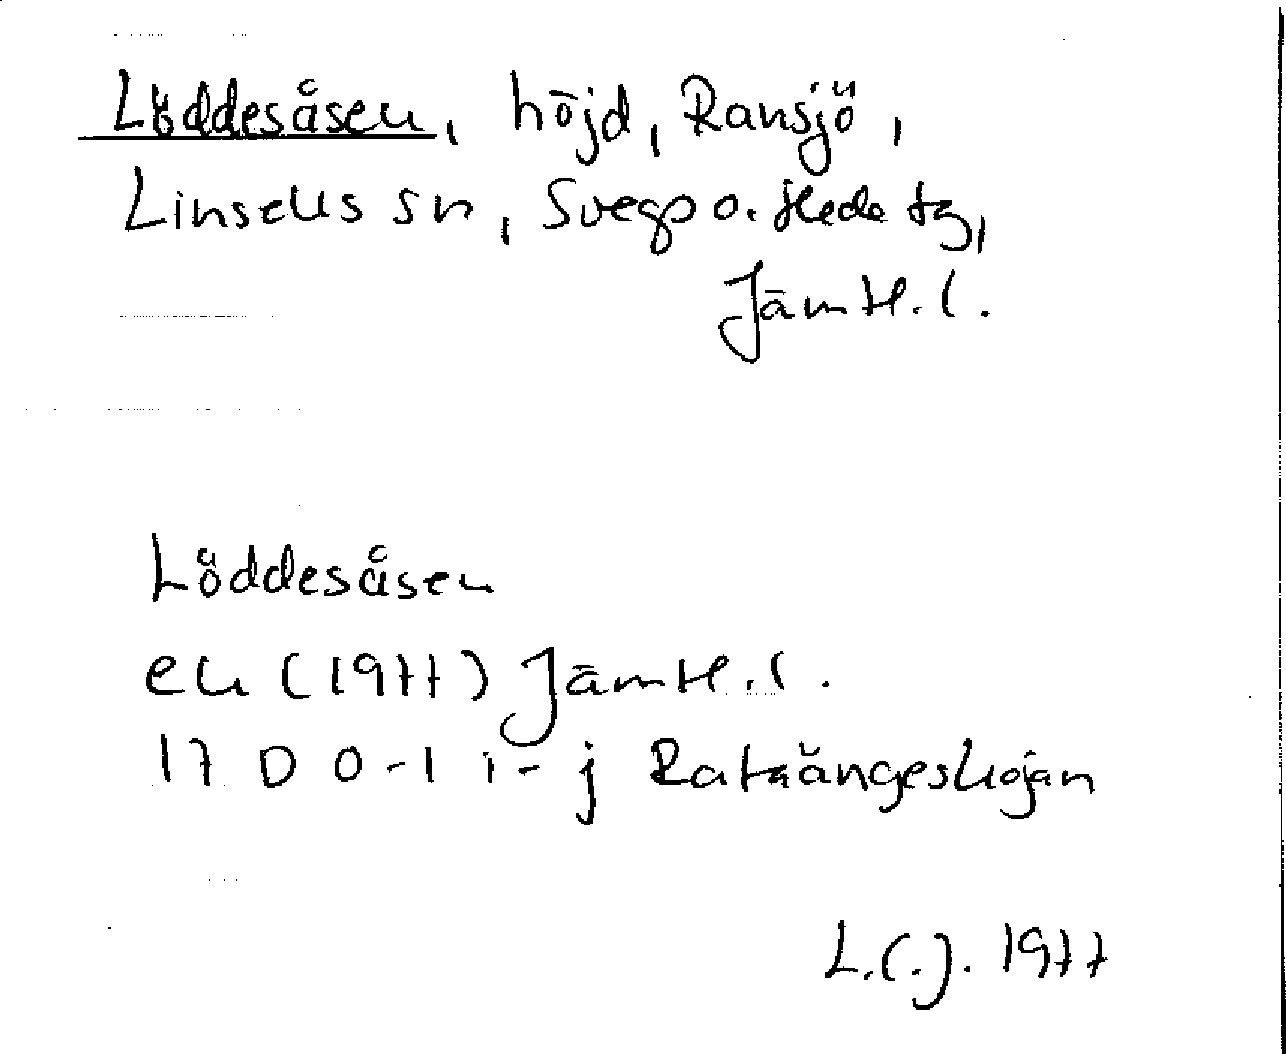 Löddesåsen, höjd, Ransjö,
Linsells sn, Svegs o. Hede tg,
Jämtl. l.
Löddesåsen
ek (1977) Jämtl. l.
17 D 0-1 i-j
L.C.J. 1977